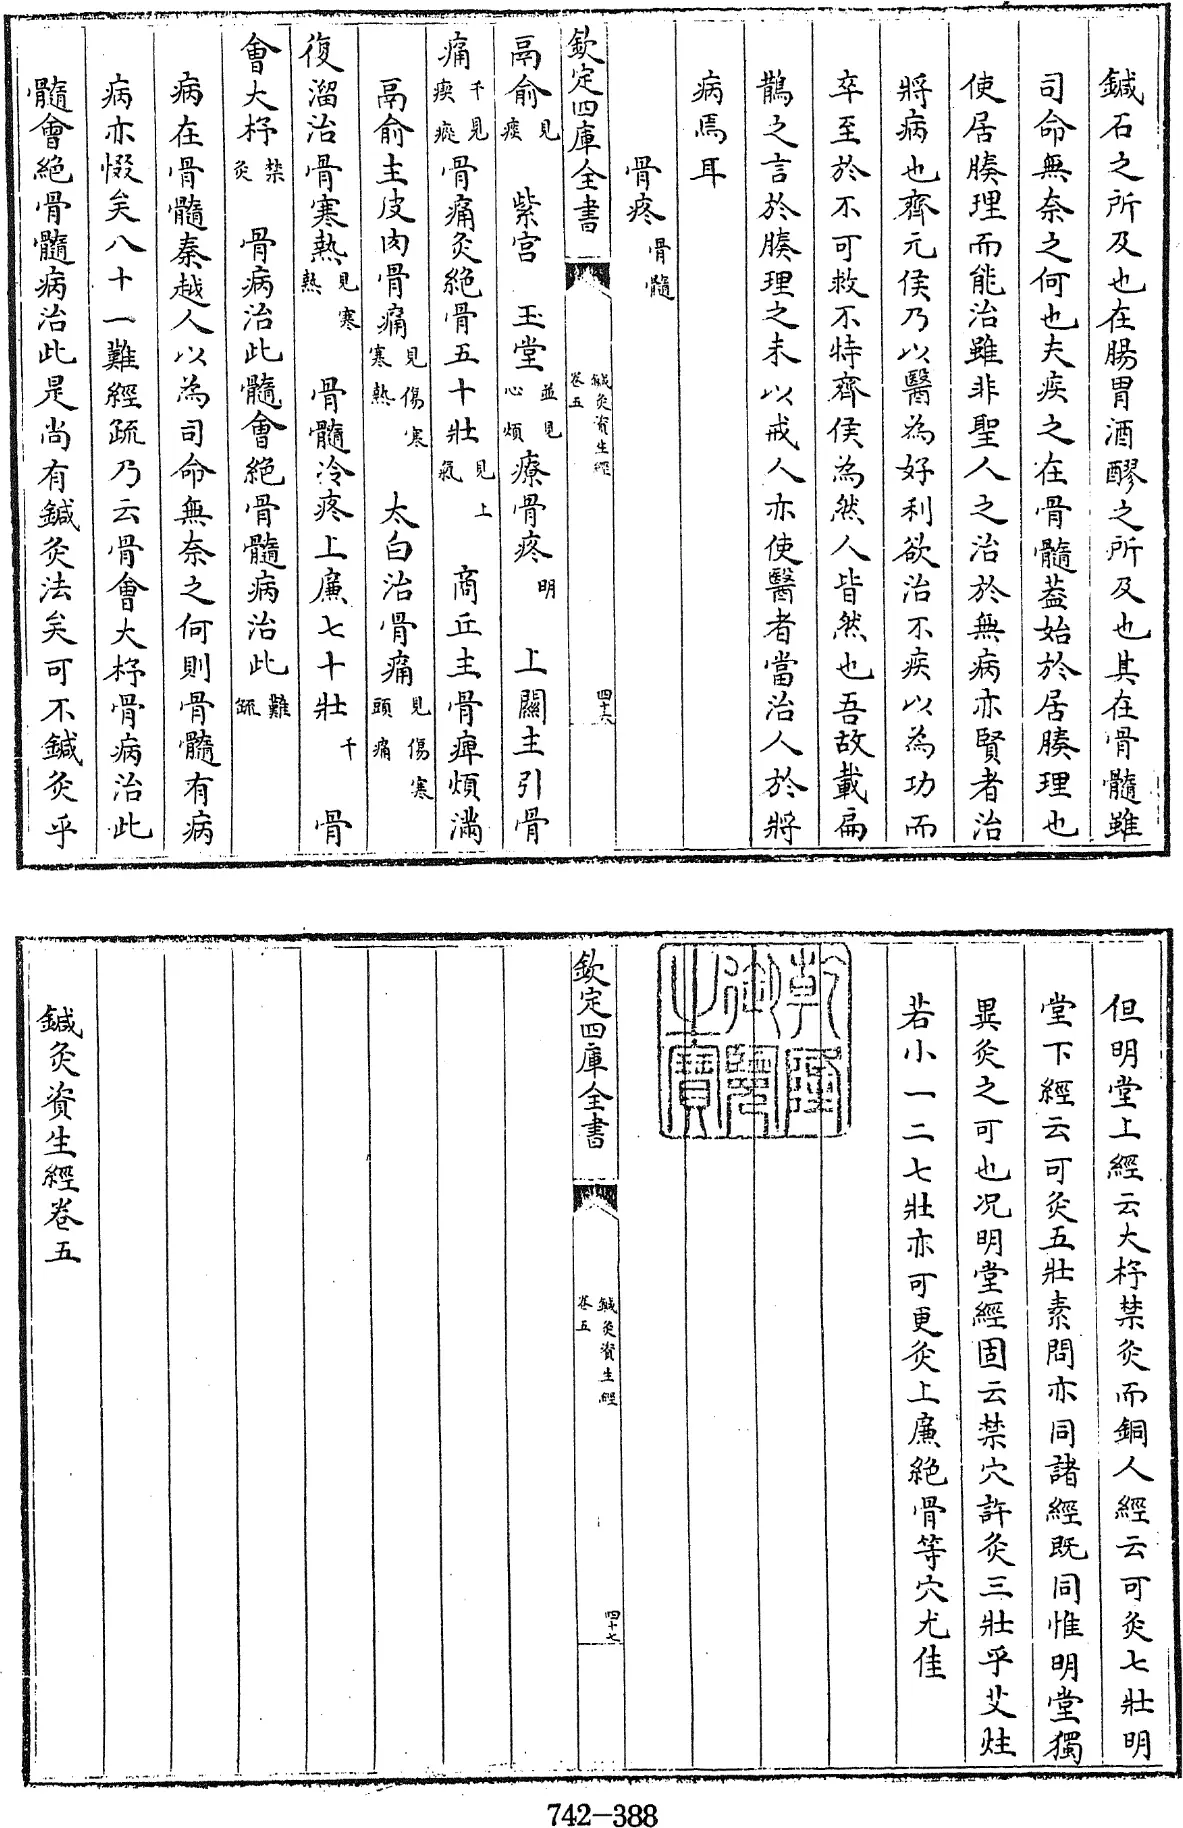 鍼石之所及也在腸胃酒醪之所及也其在骨髓雖
司命無奈之何也夫疾之在骨髓蓋始於居腠理也
使居腠理而能治雖非聖人之治於無病亦賢者治
將病也齊元侯乃以醫為好利欲治不疾以為功而
卒至於不可救不特齊侯為然人皆然也吾故載扁
鵲之言於腠理之末以戒人亦使醫者當治人於將
病焉耳
骨疼骨髓
欽定四庫全書 鍼灸資生經卷五 四十六
鬲俞見痰 紫宫 玉堂並見心煩療骨疼明 上關主引骨
痛千見瘈瘲骨痛灸絶骨五十壯見上氣 商丘主骨痺煩滿
鬲俞主皮肉骨痛見傷寒寒熱 太白治骨痛見傷寒頭痛
復溜治骨寒熱見寒熱 骨髓冷疼上廉七十壯千 骨
會大杼禁灸 骨病治此髓會絶骨髓病治此難疏
病在骨髓秦越人以為司命無奈之何則骨髓有病
病亦惙矣八十一難經疏乃云骨會大杼骨病治此
髓會絶骨髓病治此是尚有鍼灸法矣可不鍼灸乎
但明堂上經云大杼禁灸而銅人經云可灸七壯明
堂下經云可灸五壯素問亦同諸經既同惟明堂獨
異灸之可也况明堂經固云禁穴許灸三壯乎艾炷
若小一二七壯亦可更灸上廉絶骨等穴尤佳
乾隆御覽之寶
欽定四庫全書 鍼灸資生經卷五 四十七
鍼灸資生經卷五
742-388